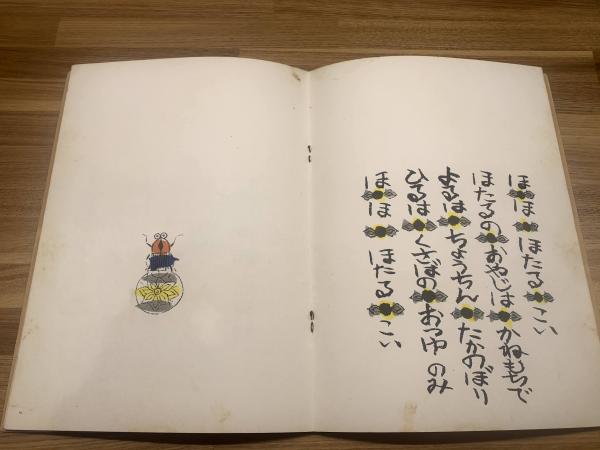 ほ ほ ほたる こい
ほたるの おやじは かねもちで
よるは ちょうちん たかのぼり
ひるは くさばの おつゆ のみ
ほ ほ ほたる こい